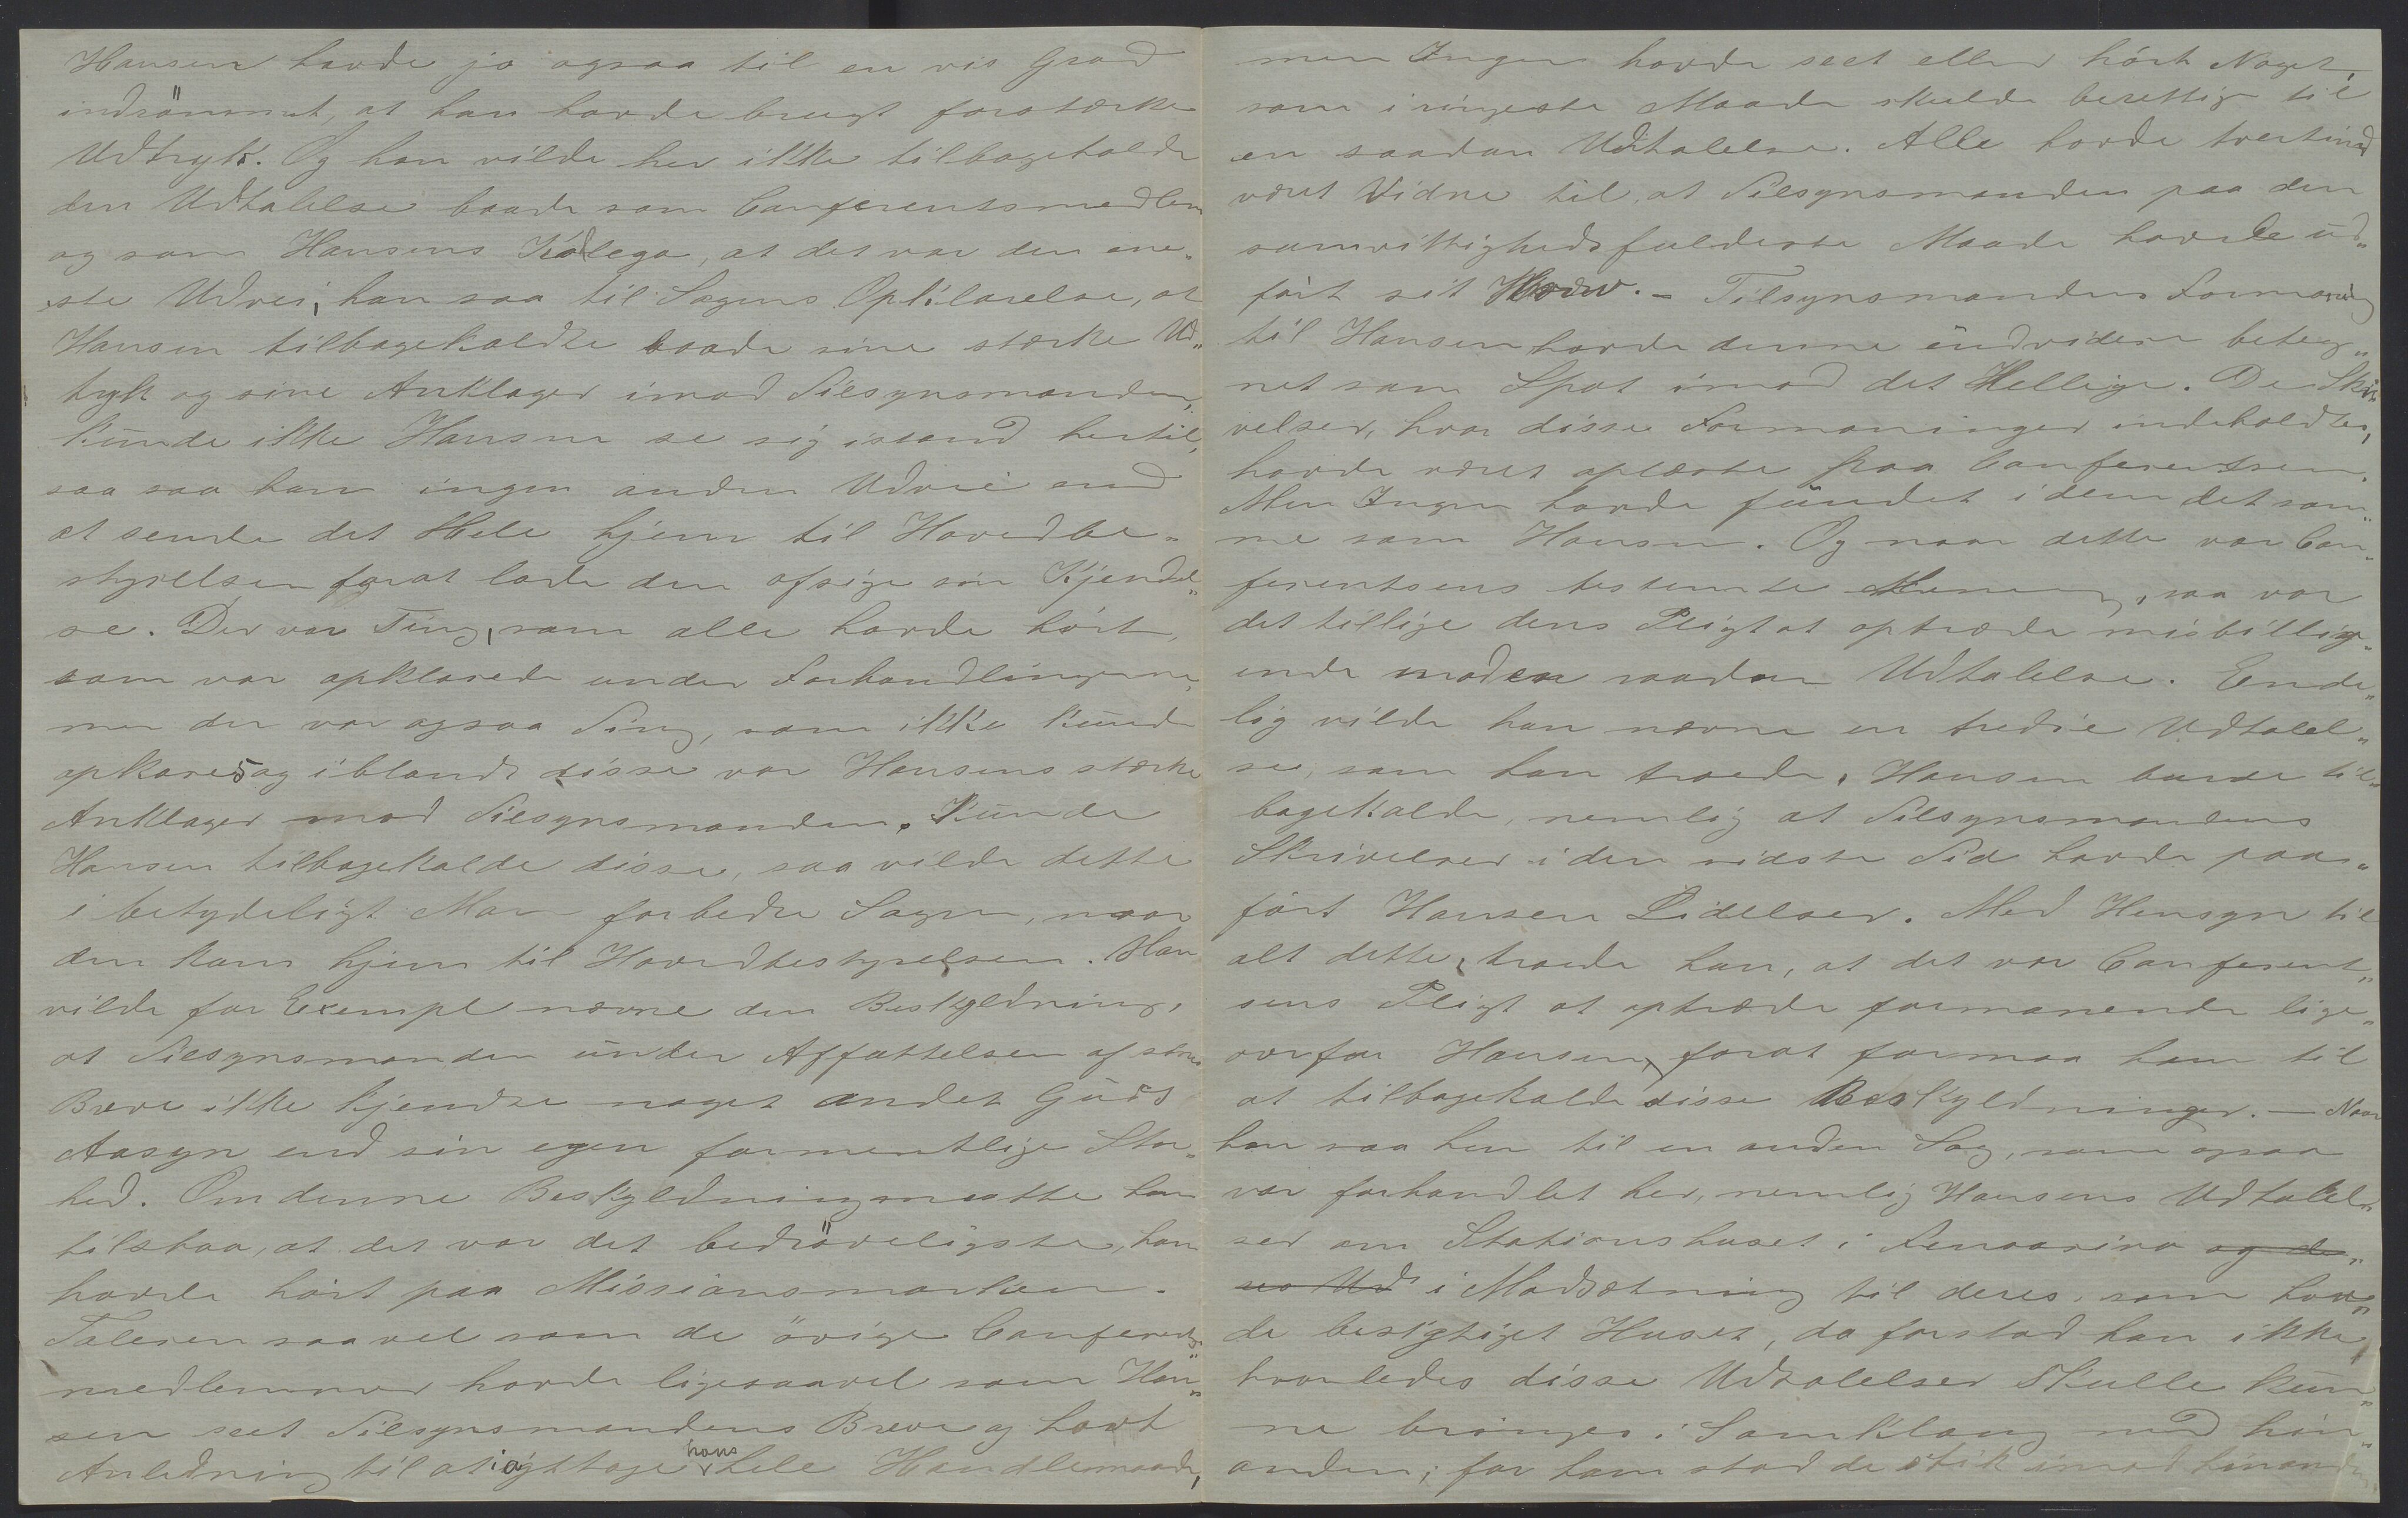 Hansen havde jo ogsaa til en vis Grad
indrömmet, at han havde brugt forstærke
Udtryk. Og han vilde her ikke tilbageholde
den Udtalelse baade som Conferentsmedlem
og som Hansens Kollega, at det var den ene„
ste Udvei, han saa til Sagens Opklarelse, at
Hansen tilbagekaldte baade sine stærke Ud„
tryk og sine Anklager imod Tilsynsmanden,
kunde ikke Hansen se sig istand hertil,
saa saa han ingen anden Udvei end
at sende det Hele hjem til Hovedbe„
styrelsen forat lade den afsige sin Kjendel„
se. Der var Ting, som alle havde hört,
som var opklarede under Forhandlingerne,
men der var ogsaa Ting, som ikke kunde
opklares og iblandt disse var Hansens stærke
Anklager mod Tilsynsmanden. Kunde
Hansen tilbagekalde disse, saa vilde dette
i betydeligt Mon forbedre Sagen, naar
den kom hjem til Hovedbestyrelsen. Han
vilde for Exempel nævne den Beskyldning,
at Tilsynsmanden under Affattelsen af sine
Breve ikke kjendte noget andet Guds
Aasyn end sin egen formentlige Stor„
hed. Om denne Beskyldning maatte han
tilstaa, at det var det bedröveligste, han
havde hört paa Missionsmarken.
Taleren saavel som de övrige Conferents„
medlemmer havde ligesaavel som Han„
sen seet Tilsynsmandens Breve og havt
Anledning til at iagttage hans hele Handlemaade,
men Ingen havde seet eller hört Noget,
som i ringeste Maade skulde berettige til
en saadan Udtalelse. Alle havde tvertimod
været Vidne til, at Tilsynsmanden paa den
samvittighedsfuldeste Maade havde ud„
fört sit Hverv. – Tilsynsmandens Formaning
til Hansen havde denne endvidere beteg„
net som Spot imod det Hellige. De Skri„
velser, hvor disse Formaninger indeholdtes,
havde været oplæste paa Conferentsen.
Men Ingen havde fundet i dem det sam„
me som Hansen. Og naar dette var Con„
ferentsens bestemte Mening, saa var
det tillige dens Pligt at optræde misbillig„
ende mod en saadan Udtalelse. Ende„
lig vilde han nævne en tredie Udtalel„
se, som han troede, Hansen burde til„
bagekalde, nemlig at Tilsynsmandens
Skrivelser i den sidste Tid havde paa„
fört Hansen Lidelser. Med Hensyn til
alt dette, troede han, at det var Conferent„
sens Pligt at optræde formanende lige„
overfor Hansen, forat formaa ham til
at tilbagekalde disse Beskyldninger. — Naar
han saa hen til en anden Sag, som ogsaa
var forhandlet her, nemlig Hansens Udtalel„
ser om Stationshuset i Fenoarivo og de„
res Ud i Modsætning til deres, som hav„
de besigtiget Huset, da forstod han ikke
hvorledes disse Udtalelser skulle kun„
ne bringes i Samklang med hin„
anden; for ham stod de stik imod hinanden